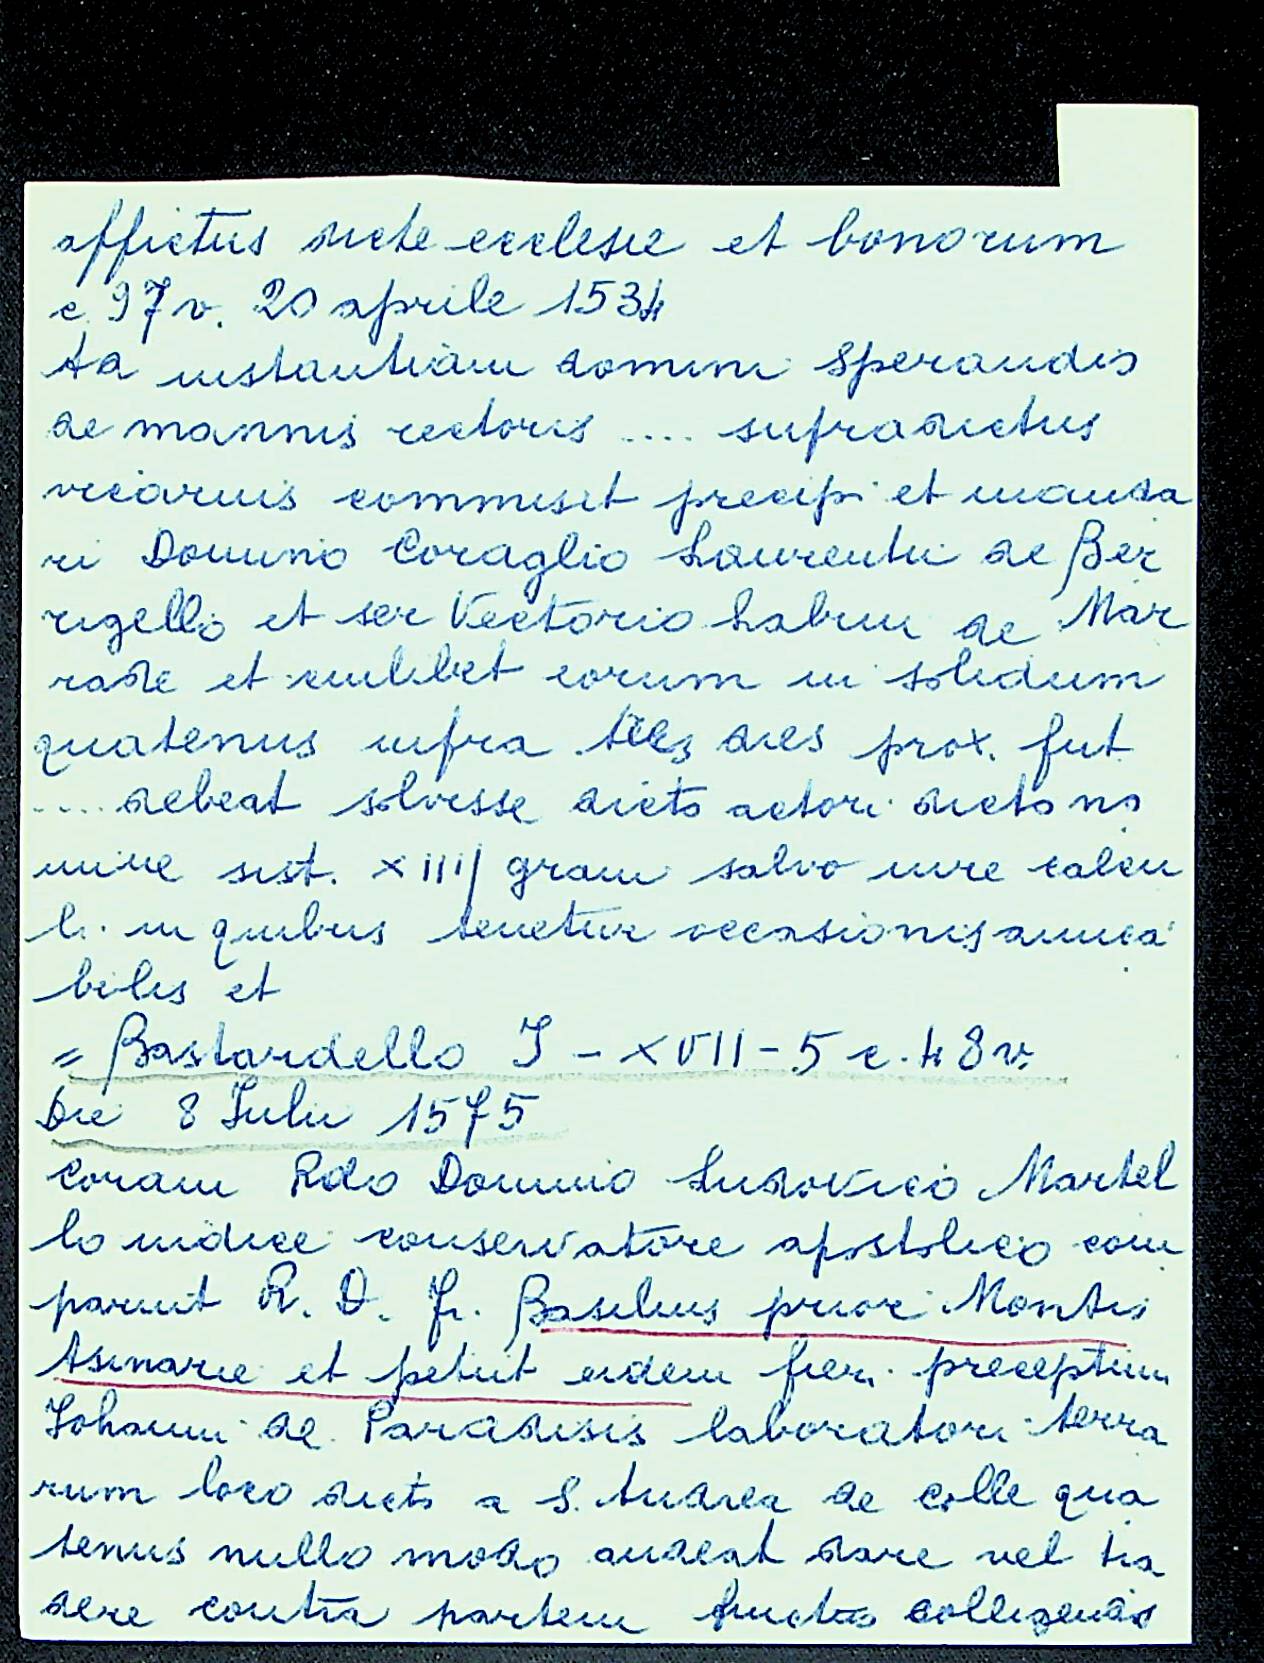 affictus dicte ecclesie et bonorum
c. 97 v. 20 aprile 1534
Ad instantiam domini Sperandio
de mannis rectoris .... supradictus
vicarius commisit precipi et manda
ri Domino Coraglio Laurentii de Ber
rigello et ser Vectorio Labrini de Mar
rade et cuilibet eorum in solidum
quatenus infra tres dies prox. fut
.... debeat solvisse dicto actori dicto no
mine sist. XIIII gram salvo iure calcu
li in quibus tenetur occasionis
bilis et
= Bastardello I - XVII - 5 c. 48 v.
Die 8 Iulii 1575
coram Rdo Domino Ludovico Martel
lo iudice conservatore apostolico com
paruit R. D. Fr. Basilius prior Montis
Asinarie et petiit eidem fieri preceptum
Iohanni de Paradisis laboratori terra
rum loco dicto a S. Andrea de colle qua
tenus nullo modo audeat dare vel tra
dere contra partem fructus colligendos